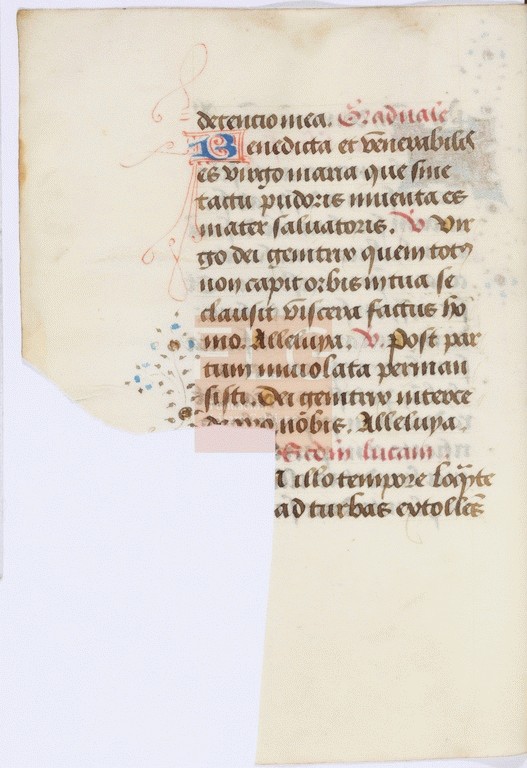 detentio mea. Graduale
Benedicta et venerabilis
es virgo maria que sine
tactu pudoris inventa es
mater salvatoris. V Vir
go dei genitrix quem totꝰ
non capit orbis in tua se
clausit viscera factus ho
mo. Alleluya. V. Post par
tum inviolata perman
sisti dei genitrix interce
pro nobis. Alleluya
Scdm lucam
n illo tempore loq̄nte
ad turbas extollēs